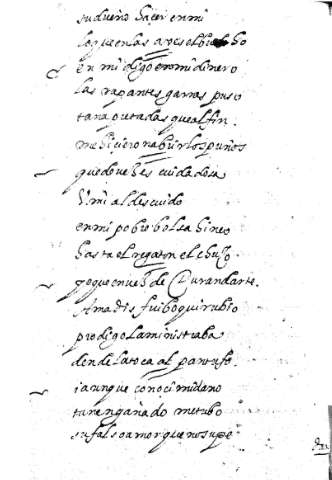 su dueño hacer en mi
lo que en las aves el buho
en mi digo en mi dinero
las rapantes garras puso
tan apretadas que al fin
me hicieron abrir los puños
que do ve hes cuidadosa
y mi al descuido
en mi pobre bolsa hinco
hasta el regaton el chuço
y que en ves de Durandarte
Amadis fui boquirubio
prodigo la ministraba
dende la toca al pantufo
i aunque conoci mi daño
tan engañado me tubo
su falso amor que no supe